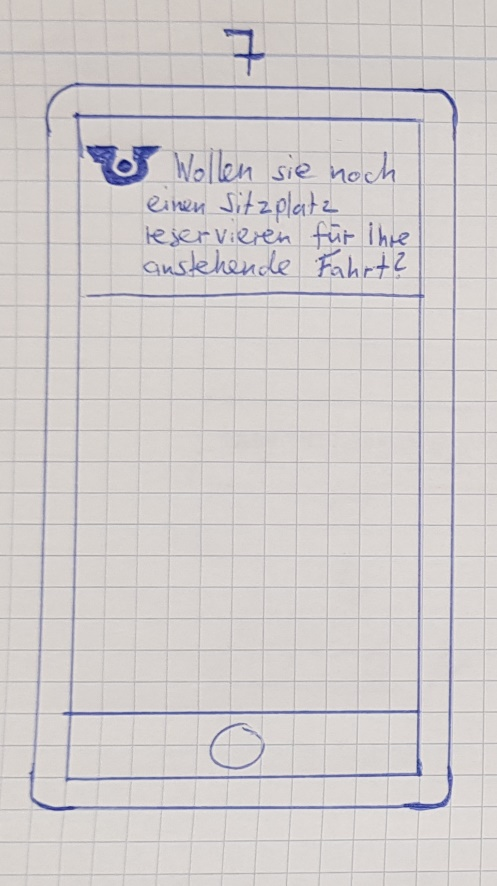 7
Wollen sie noch
einen Sitzplatz
reservieren für ihre
anstehende Fahrt?